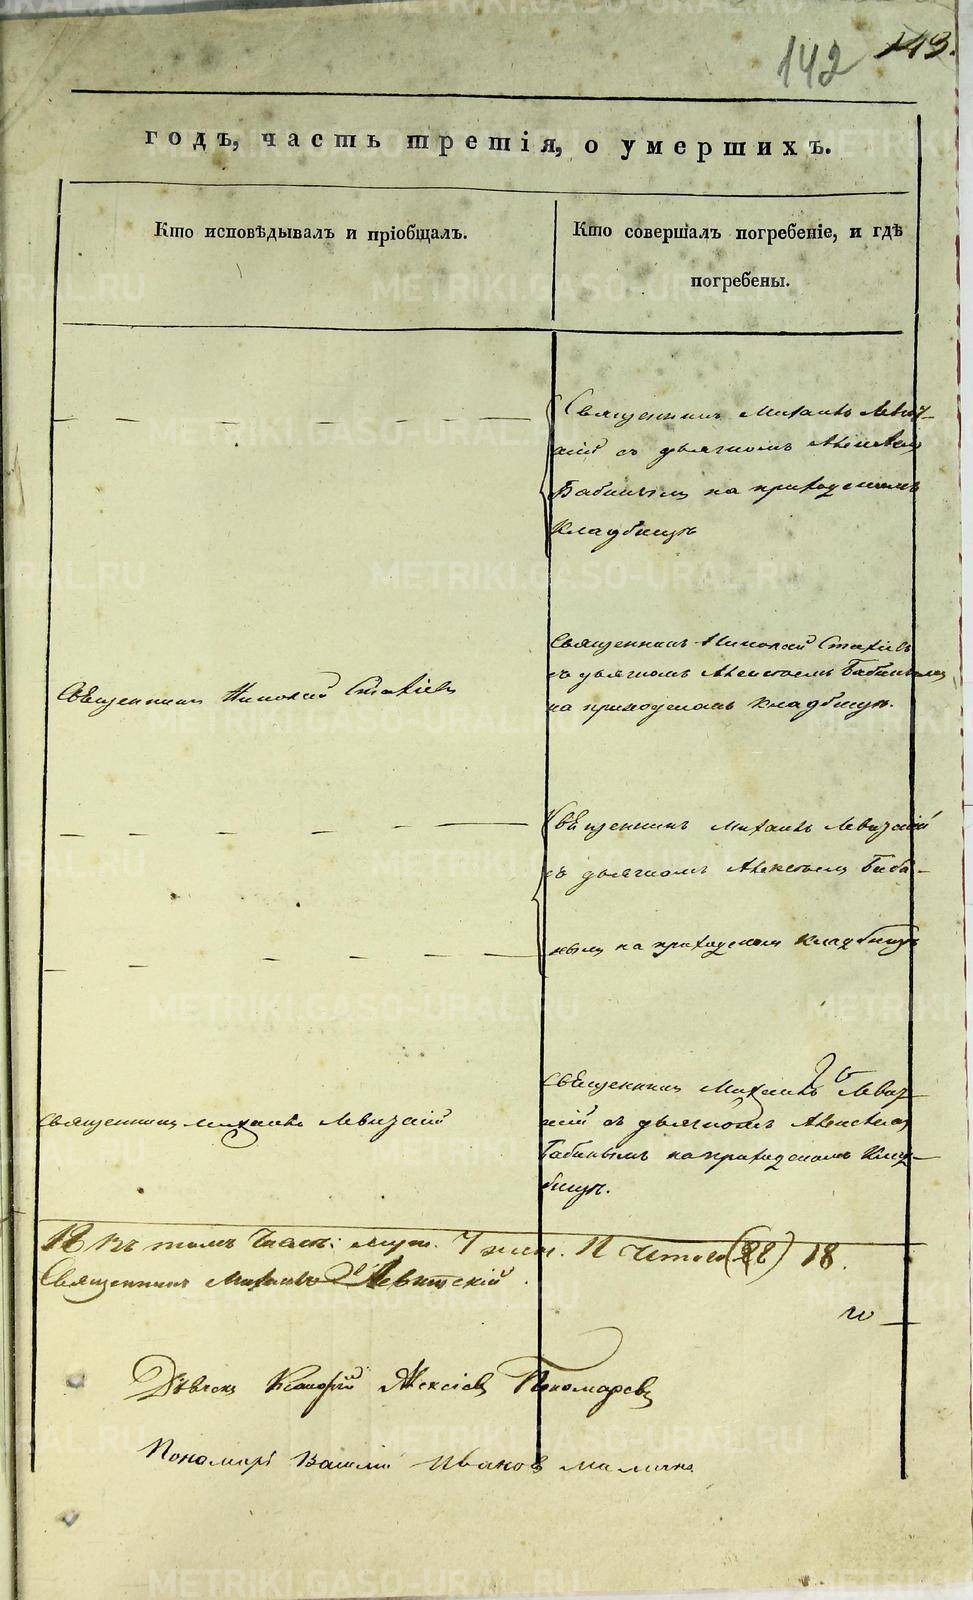 142 143.
годъ, часть третія, о умершихъ.
Кто исповѣдывалъ и пріобщалъ.
Кто совершалъ погребеніе, и гдѣ
погребены.
Священникъ Михаилъ Левит-
скій съ дьячкомъ Алексѣем
Бабинымъ на приходскомъ
кладбищѣ
Священникъ Николай Стахіевъ
Священникъ Николай Стахіевъ
съ дьячкомъ Алексѣемъ Бабинымъ
на приходскомъ кладбищѣ.
Священникъ Михаилъ Левицкій
съ дьячкомъ Алексѣем Баби-
нымъ на приходском кладбищѣ
Священникъ Михаилъ Левицкій
Священникъ Михаилъ Левиц-
кій съ дьячкомъ Алексѣем
Бабинымъ на приходскомъ Клад-
бищѣ.
Въ томъ Част: муж. 7 жен. 11 Итого (22) 18.
Священникъ Михаилъ Левитскій.
Дьячекъ Алексіевъ Пономаревъ
Пономарь Василій Ивановъ
METRIKI.GASO-URAL.RU